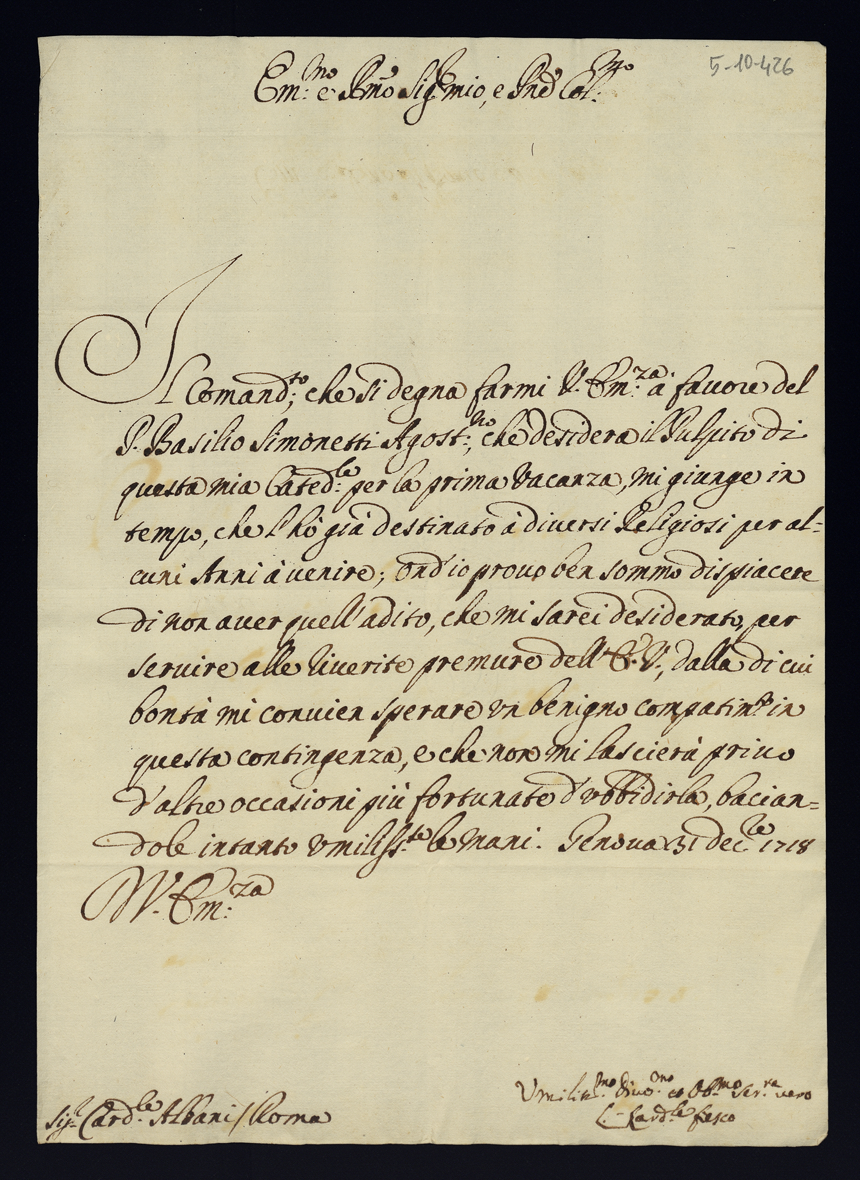 5-10-426
Em:mo e Rmo Sigr mio, e Pne Col:mo
Il Comandto; che si degna farmi V. Em:za à favore del
P. Basilio Simonetti Agost:no, che desidera il Pulpito di
questa mia Cated:le per la prima vacanza, mi giunge in
tempo, che l'hò già destinato à diversi Religiosi per al=
cuni Anni à venire; ond'io provo ben sommo dispiacere
di non aver quell'adito, che mi sarei desiderato, per
servire alle riverite premure dell'E. V., dalla di cui
bontà mi convien sperare vn benigno compatimto in
questa contingenza, e che non mi lascierà privo
d'altre occasioni più fortunate d'vbbidirla, bacian=
dole intanto vmiliss:te le mani. Genova 31 dec:le 1718
Di V. Em:za
Vmiliss:mo divo:mo et Obb:mo Ser:re vero
Sigr Card:le Albani / Roma
L. Card:le Fiesco